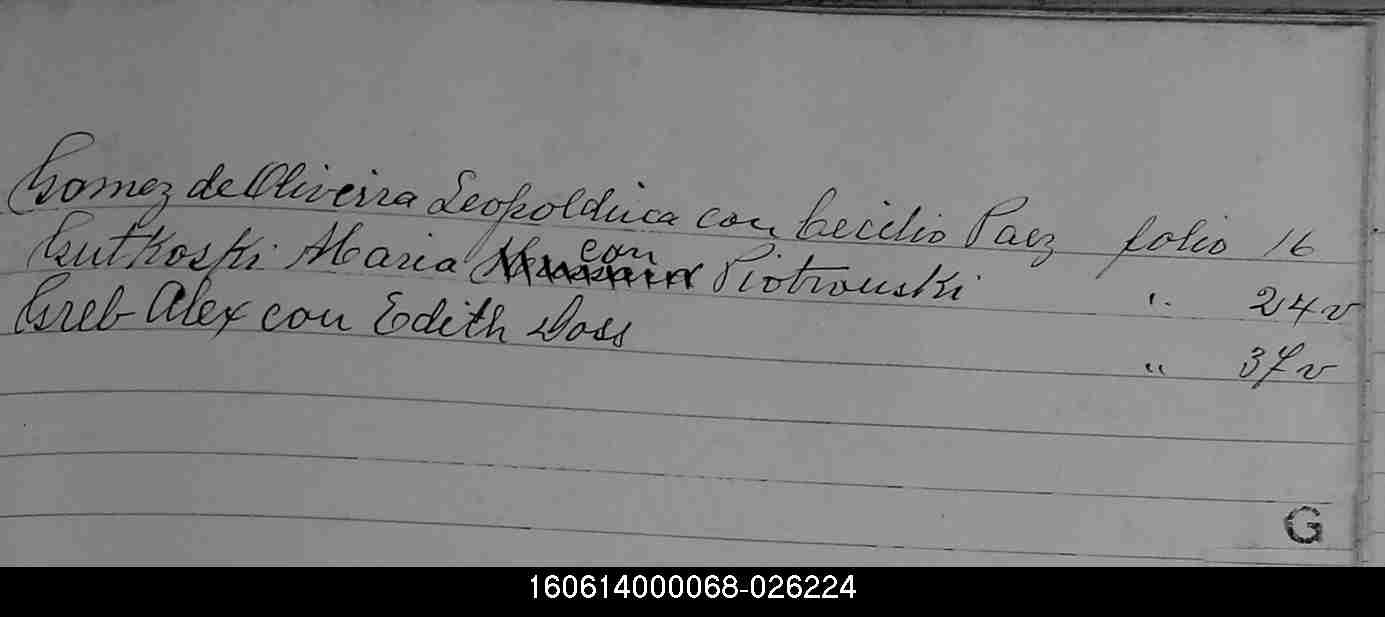 Gomez de Oliveira Leopoldina con Cecilio Paez folio 16
Gutkoski Maria con Piotrouski " 24v
Greb Alex con Edith Doss " 37v
G
160614000068-026224